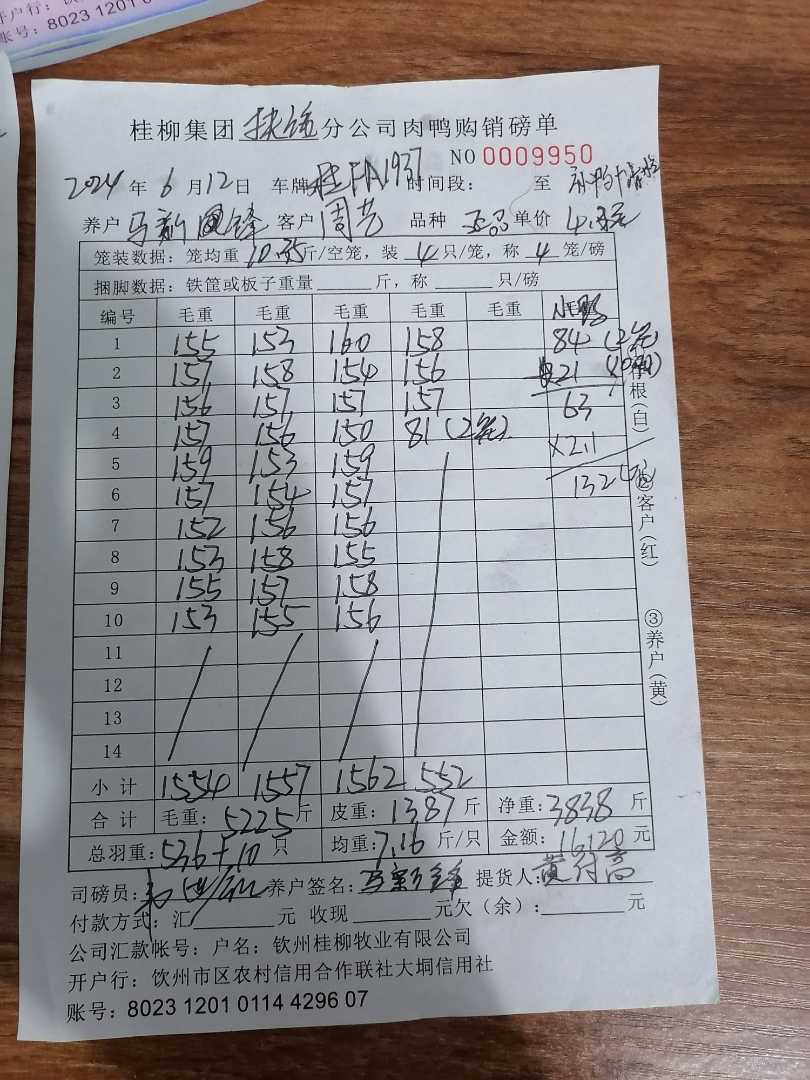 开户行: 钦
账号: 8023 1201 0
桂柳集团扶绥分公司肉鸭购销磅单
NO 0009950
2024 年 6 月 12 日 车牌 桂FA1937 时间段: 至
养户 客户 周艺 品种 单价
笼装数据: 笼均重 10.95 斤/空笼, 装 4 只/笼, 称 4 笼/磅
捆脚数据: 铁筐或板子重量 斤, 称 只/磅
编号 毛重 毛重 毛重 毛重 毛重
1 155 153 160 158 84 (2笼)
2 157 158 154 156 21
3 156 157 157 157 63
4 157 156 150 81 (2笼) X2.11
5 159 153 159 132
6 157 154 157
7 152 156 156
8 153 158 155
9 155 157 158
10 153 155 156
11
12
13
14
小计 1554 1557 1562 552
合计 毛重: 5225 斤 皮重: 1387 斤 净重: 3838 斤
总羽重: 536+10 只 均重: 7.16 斤/只 金额: 16120 元
司磅员: 养户签名: 提货人: 黄付高
付款方式: 汇 元 收现 元欠（余）: 元
公司汇款帐号: 户名: 钦州桂柳牧业有限公司
开户行: 钦州市区农村信用合作联社大垌信用社
账号: 8023 1201 0114 4296 07
根（白）
②客户（红）
③养户（黄）